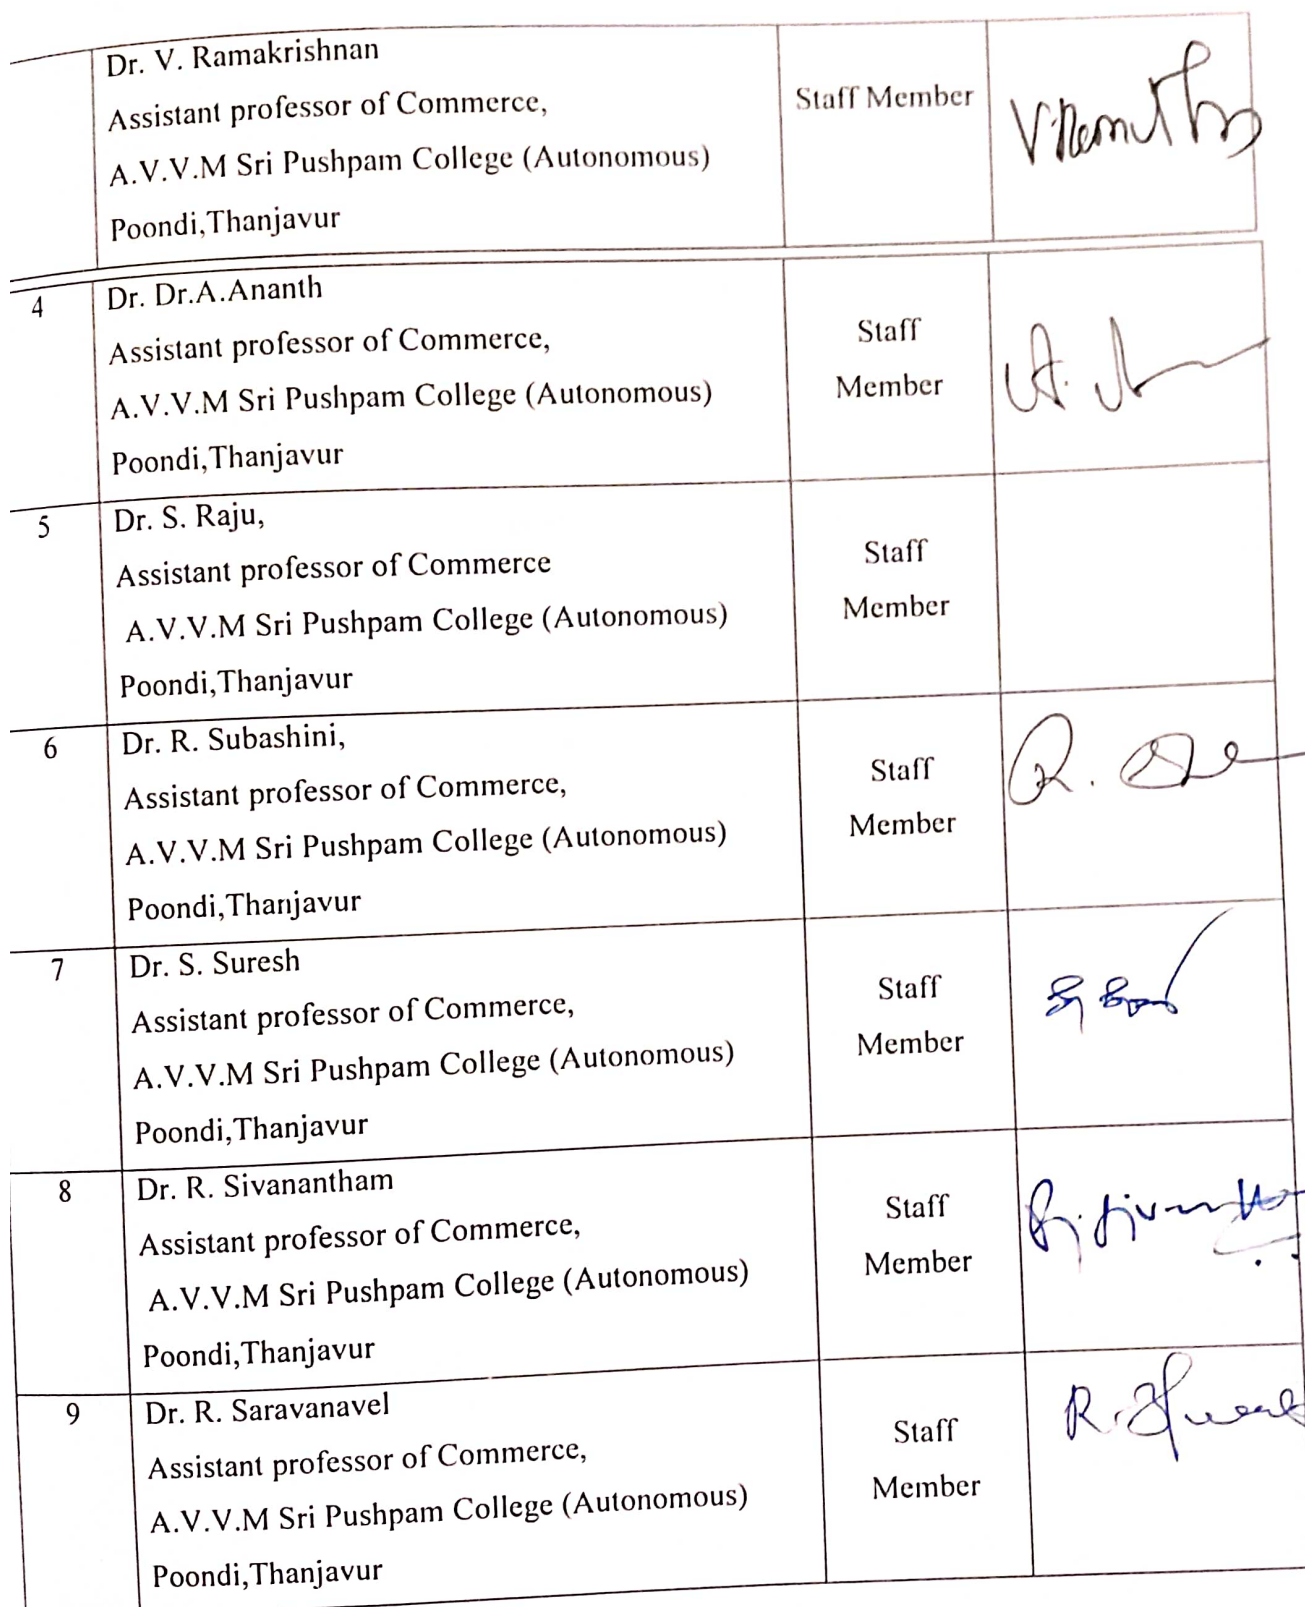 Dr. V. Ramakrishnan
Assistant professor of Commerce,
A.V.V.M Sri Pushpam College (Autonomous)
Poondi,Thanjavur
Staff Member
4
Dr. Dr.A.Ananth
Assistant professor of Commerce,
A.V.V.M Sri Pushpam College (Autonomous)
Poondi,Thanjavur
Staff
Member
5
Dr. S. Raju,
Assistant professor of Commerce
A.V.V.M Sri Pushpam College (Autonomous)
Poondi,Thanjavur
Staff
Member
6
Dr. R. Subashini,
Assistant professor of Commerce,
A.V.V.M Sri Pushpam College (Autonomous)
Poondi,Thanjavur
Staff
Member
7
Dr. S. Suresh
Assistant professor of Commerce,
A.V.V.M Sri Pushpam College (Autonomous)
Poondi,Thanjavur
Staff
Member
8
Dr. R. Sivanantham
Assistant professor of Commerce,
A.V.V.M Sri Pushpam College (Autonomous)
Poondi,Thanjavur
Staff
Member
9
Dr. R. Saravanavel
Assistant professor of Commerce,
A.V.V.M Sri Pushpam College (Autonomous)
Poondi,Thanjavur
Staff
Member